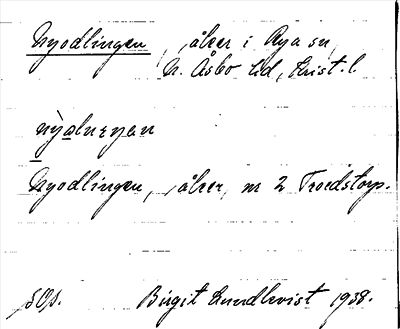 Nyodlingen, åker i Rya sn,
N. Åsbo hd, Krist. l.
nỳalnεŋan
Nyodlingen, åker, nr 2 Troedstorp.
SOA. Birgit Lundkvist 1938.